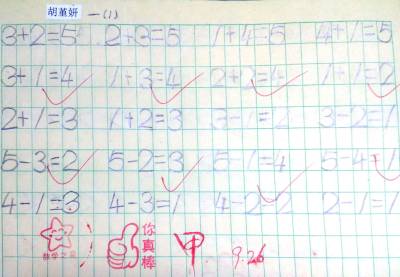 胡菫妍 一(1)
3+2=5 2+3=5 1+4=5 4+1=5
3+1=4 1+3=4 2+2=4 1+1=2
2+1=3 1+2=3 3-1=2 3-2=1
5-3=2 5-2=3 5-1=4 5-4=1
4-1=3 4-3=1 4-2=2 2-1=1
数学之星 你真棒 甲 9.26